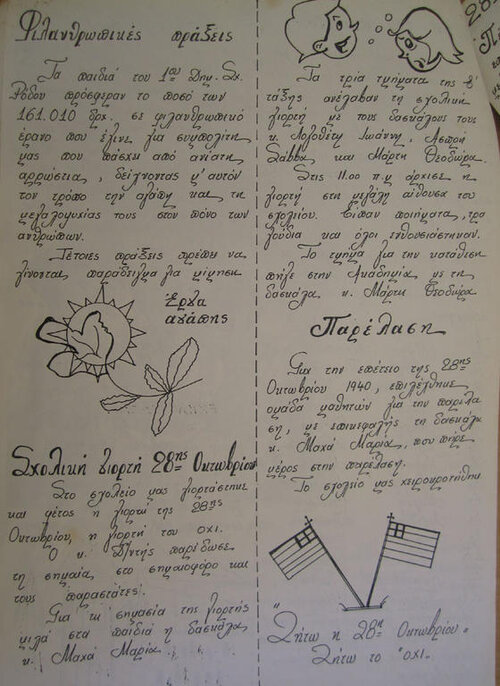 Φιλανθρωπικές πράξεις
Τα παιδιά του 1ου Δημ. Σχ.
Ρόδου πρόσφεραν το ποσό των
161.010 δρχ. σε φιλανθρωπικό
έρανο που έγινε για συμπολίτη
μας που πάσχει από ανίατη
αρρώστια, δείχνοντας μ' αυτόν
τον τρόπο την αγάπη και τη
μεγαλοψυχίας τους στον πόνο των
ανθρώπων.
Τέτοιες πράξεις πρέπει να
γίνονται παράδειγμα για μίμηση
Έργα
αγάπης
Σχολική γιορτή 28ης Οκτωβρίου
Στο σχολείο μας γιορτάστηκε
και φέτος η γιορτή της 28ης
Οκτωβρίου, η γιορτή του οχι.
Ο κ. Δ/ντής παρέδωσε
τη σημαία στο σημαιοφόρο και
τους παραστάτες.
Για τη σημασία της γιορτής
μιλά στα παιδιά η δασκάλα
κ. Μαχά Μαρία.
Τα τρία τμήματα της β'
τάξης ανέλαβαν τη σχολική
γιορτή με τους δασκάλους τους
κ. Λογοθέτη Ιωάννη, Ασπρή
Σάββα και Μάρτη Θεοδώρα.
Στις 11.00 π.μ άρχισε η
γιορτή στη μεγάλη αίθουσα του
σχολείου. Είπαν ποιήματα, τρα
γούδια και όλοι ενθουσιάστηκαν.
Το τμήμα για την κατάθεση
πήγε στην Ακαδημία με τη
δασκάλα κ. Μάρτη Θεοδώρα.
Παρέλαση
Για την επέτειο της 28ης
Οκτωβρίου 1940, επιλέχθηκε
ομάδα μαθητών για την παρέλα
ση, με επικεφαλής τη δασκάλα
κ. Μαχά Μαρία, που πήρε
μέρος στην παρέλαση.
Το σχολείο μας χειροκροτήθηκε
"Ζήτω η 28η Οκτωβρίου"
Ζήτω το "ΟΧΙ."